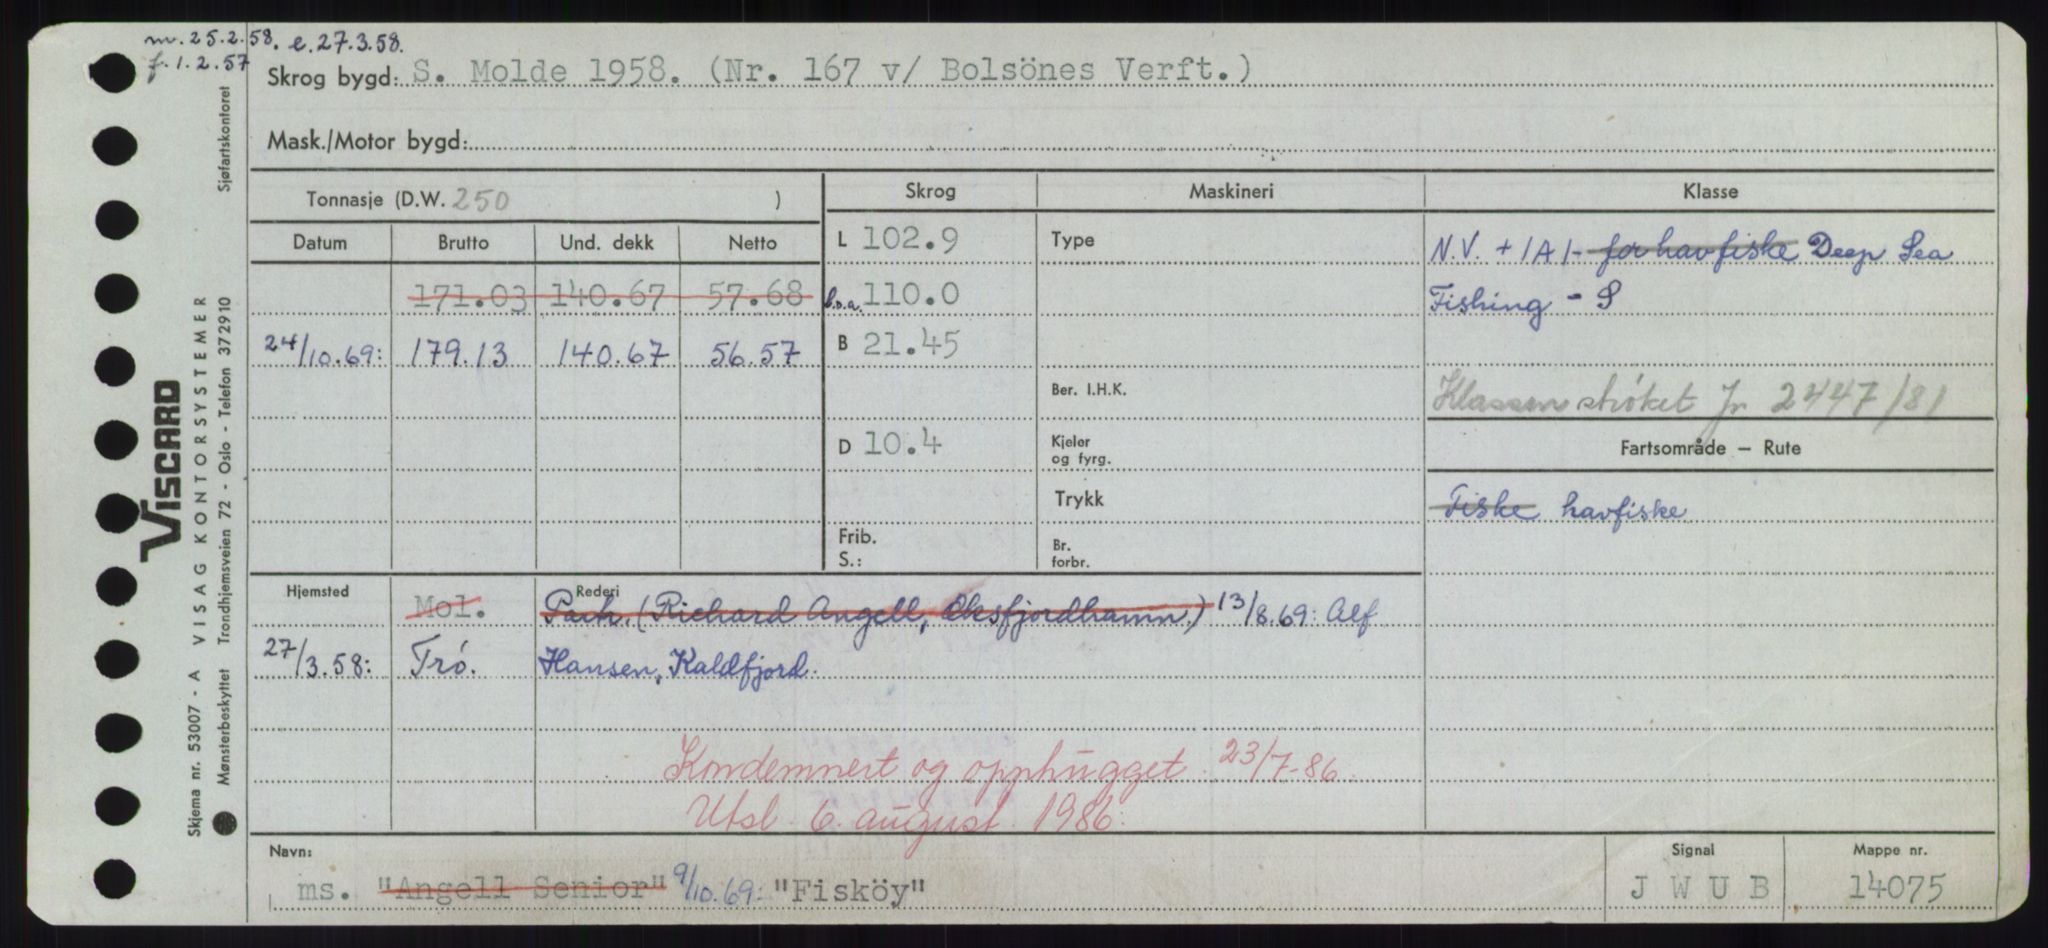 m. 25.2.58. e. 27.3.58.
f. 1.2.57
Skrog bygd: S. Molde 1958. (Nr. 167 v/ Bolsönes Verft.)
Mask./Motor bygd:
Tonnasje (D.W. 250 )
Skrog Maskineri Klasse
Datum Brutto Und. dekk Netto
L 102.9 Type
N.V. + 1A1- for havfiske Deep Sea
171.03 140.67 57.68 l.o.a. 110.0
Fishing - S
24/10.69: 179.13 140.67 56.57 B 21.45
Ber. I.H.K.
Klassen strøket Jr 2447/81
D 10.4 Kjeler og fyrg.
Fartsområde — Rute
Trykk
Fiske havfiske
Frib. S.:
Br. forbr.
Hjemsted Rederi
Mol. Parh. (Richard Angell, Øksfjordhamn.) 13/8.69: Alf
27/3.58: Trö. Hansen, Kaldfjord.
Kondemnert og opphugget 23/7-86.
Utsl. 6. august 1986.
Navn: Signal Mappe nr.
ms. "Angell Senior" 9/10.69: "Fisköy" J W U B 14075
VISCARD
Skjema nr. 53007 - A VISAG KONTORSYSTEMER Sjøfartskontoret
Mønsterbeskyttet Trondhjemsveien 72 - Oslo - Telefon 372910